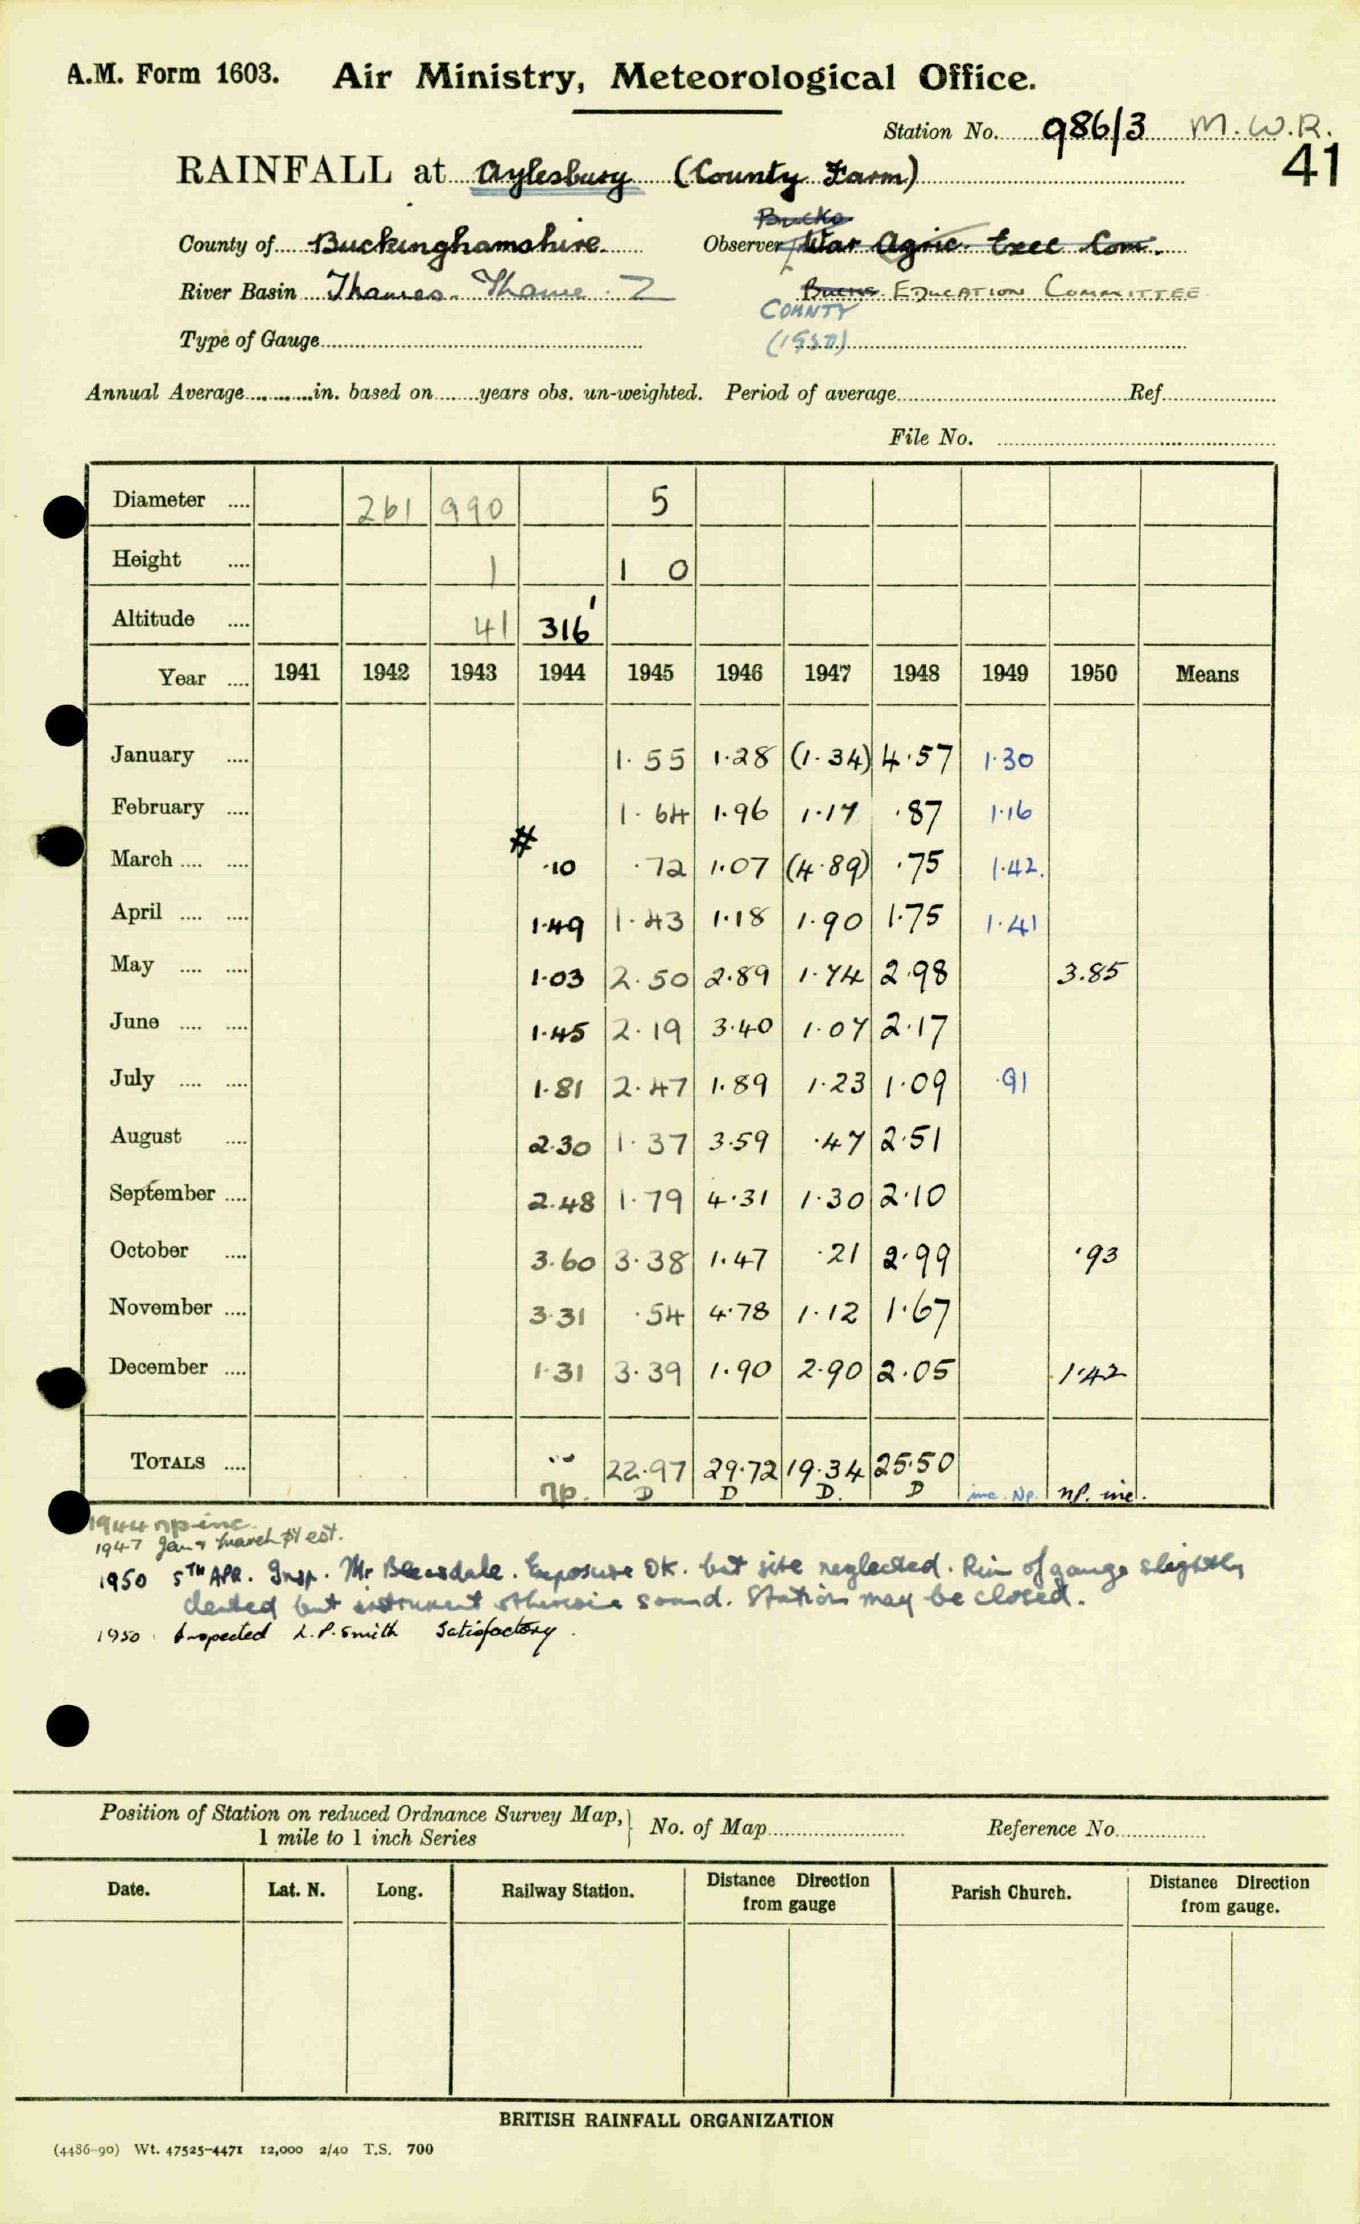 A.M. Form 1603. Air Ministry, Meteorological Office.
Station No. 986/3 M.W.R.
41
RAINFALL at Aylesbury (County Farm)
Bucks
County of Buckinghamshire Observer War Agric. Exec Com.
River Basin Thames. Thame. Z Bucks EDUCATION COMMITTEE
COUNTY
Type of Gauge
Annual Average in. based on years obs. un-weighted. Period of average Ref.
File No.
Diameter .... 261 990 5
Height .... 1 1 0
Altitude .... 41 316'
Year .... 1941 1942 1943 1944 1945 1946 1947 1948 1949 1950 Means
January .... 1.55 1.28 (1.34) 4.57 1.30
February .... 1.64 1.96 1.17 .87 1.16
March .... .... # .10 .72 1.07 (4.89) .75 1.42.
April .... .... 1.49 1.43 1.18 1.90 1.75 1.41
May .... .... 1.03 2.50 2.89 1.74 2.98 3.85
June .... .... 1.45 2.19 3.40 1.07 2.17
July .... .... 1.81 2.47 1.89 1.23 1.09 .91
August .... 2.30 1.37 3.59 .47 2.51
September .... 2.48 1.79 4.31 1.30 2.10
October .... 3.60 3.38 1.47 .21 2.99 .93
November .... 3.31 .54 4.78 1.12 1.67
December .... 1.31 3.39 1.90 2.90 2.05 1.42
TOTALS .... .. 22.97 29.72 19.34 25.50
np. D D D. D inc. Np. np. inc.
1944 np inc.
1947 Jan & March est.
1950 5TH APR. Insp. Mr Bleasdale. Exposure OK. but site neglected. Rim of gauge slightly
dented but instrument otherwise sound. Station may be closed.
1950. Inspected L.P. Smith Satisfactory.
Position of Station on reduced Ordnance Survey Map,
1 mile to 1 inch Series
No. of Map Reference No.
Date. Lat. N. Long. Railway Station. Distance Direction from gauge Parish Church. Distance Direction from gauge.
BRITISH RAINFALL ORGANIZATION
(4486-90) Wt. 47525-4471 12,000 2/40 T.S. 700